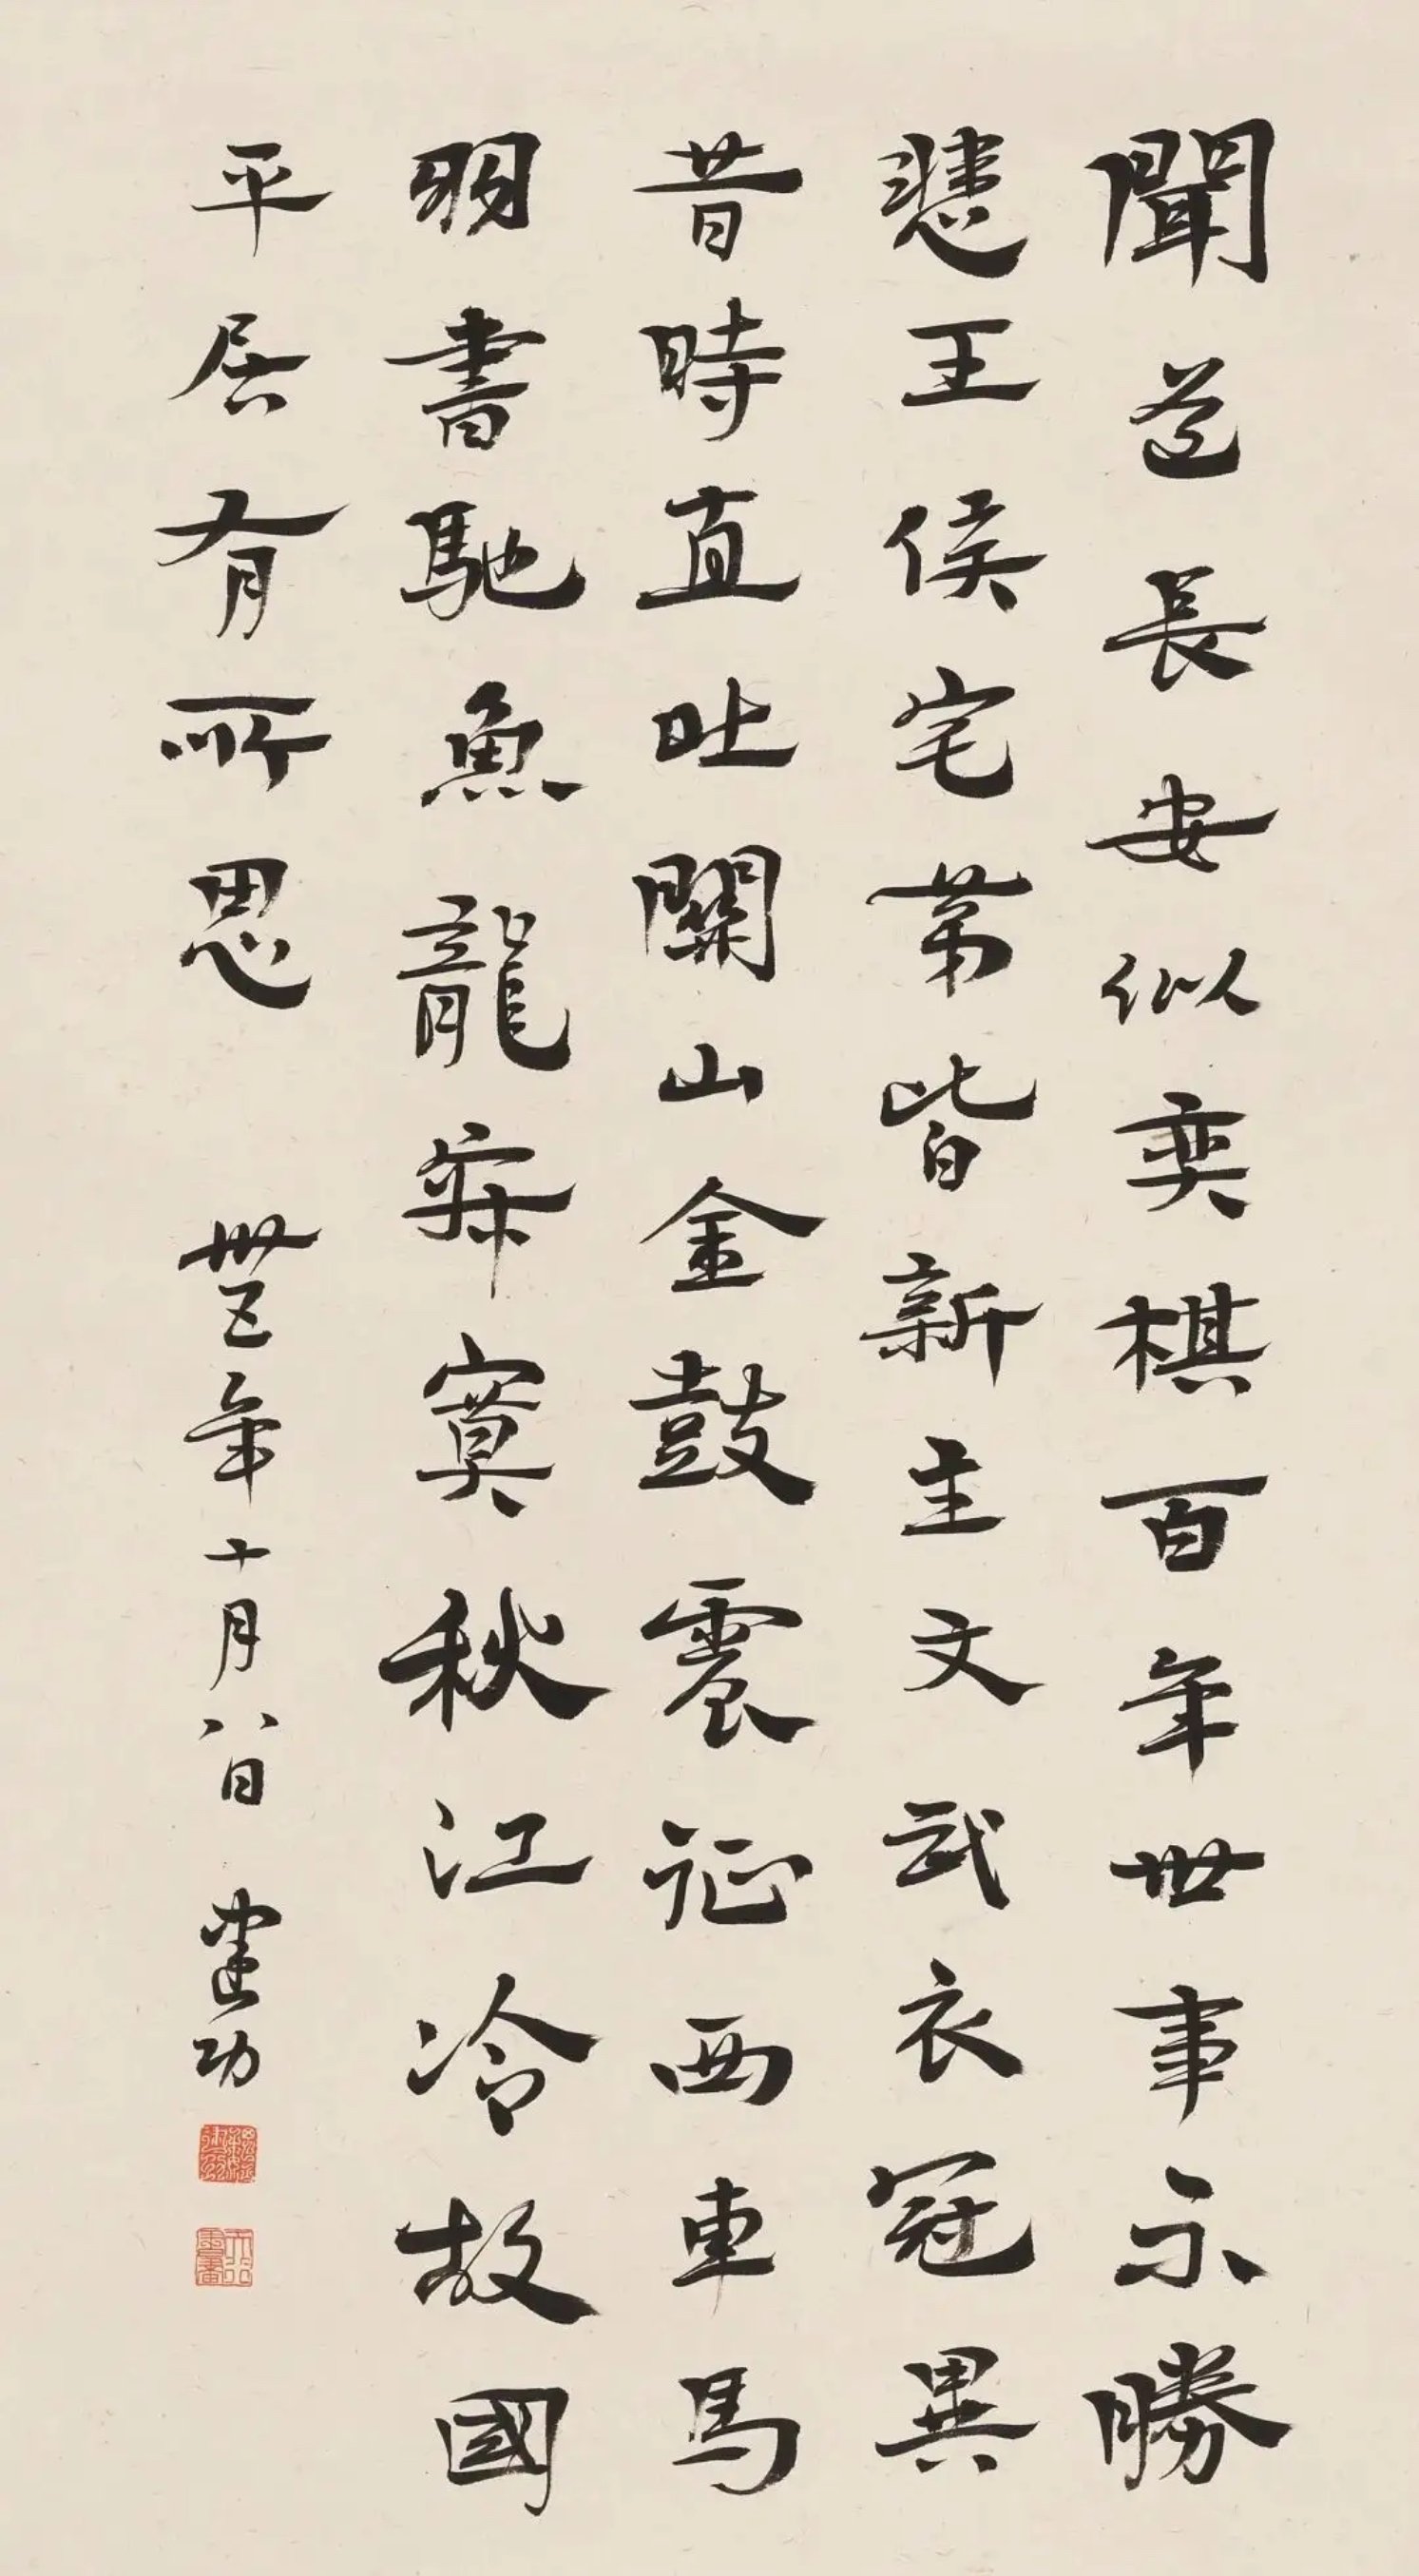 聞道長安似奕棋百年世事不勝
悲王侯宅第皆新主文武衣冠異
昔時直北關山金鼓震征西車馬
羽書馳魚龍寂寞秋江冷故國
平居有所思 卅五年十月八日 建功